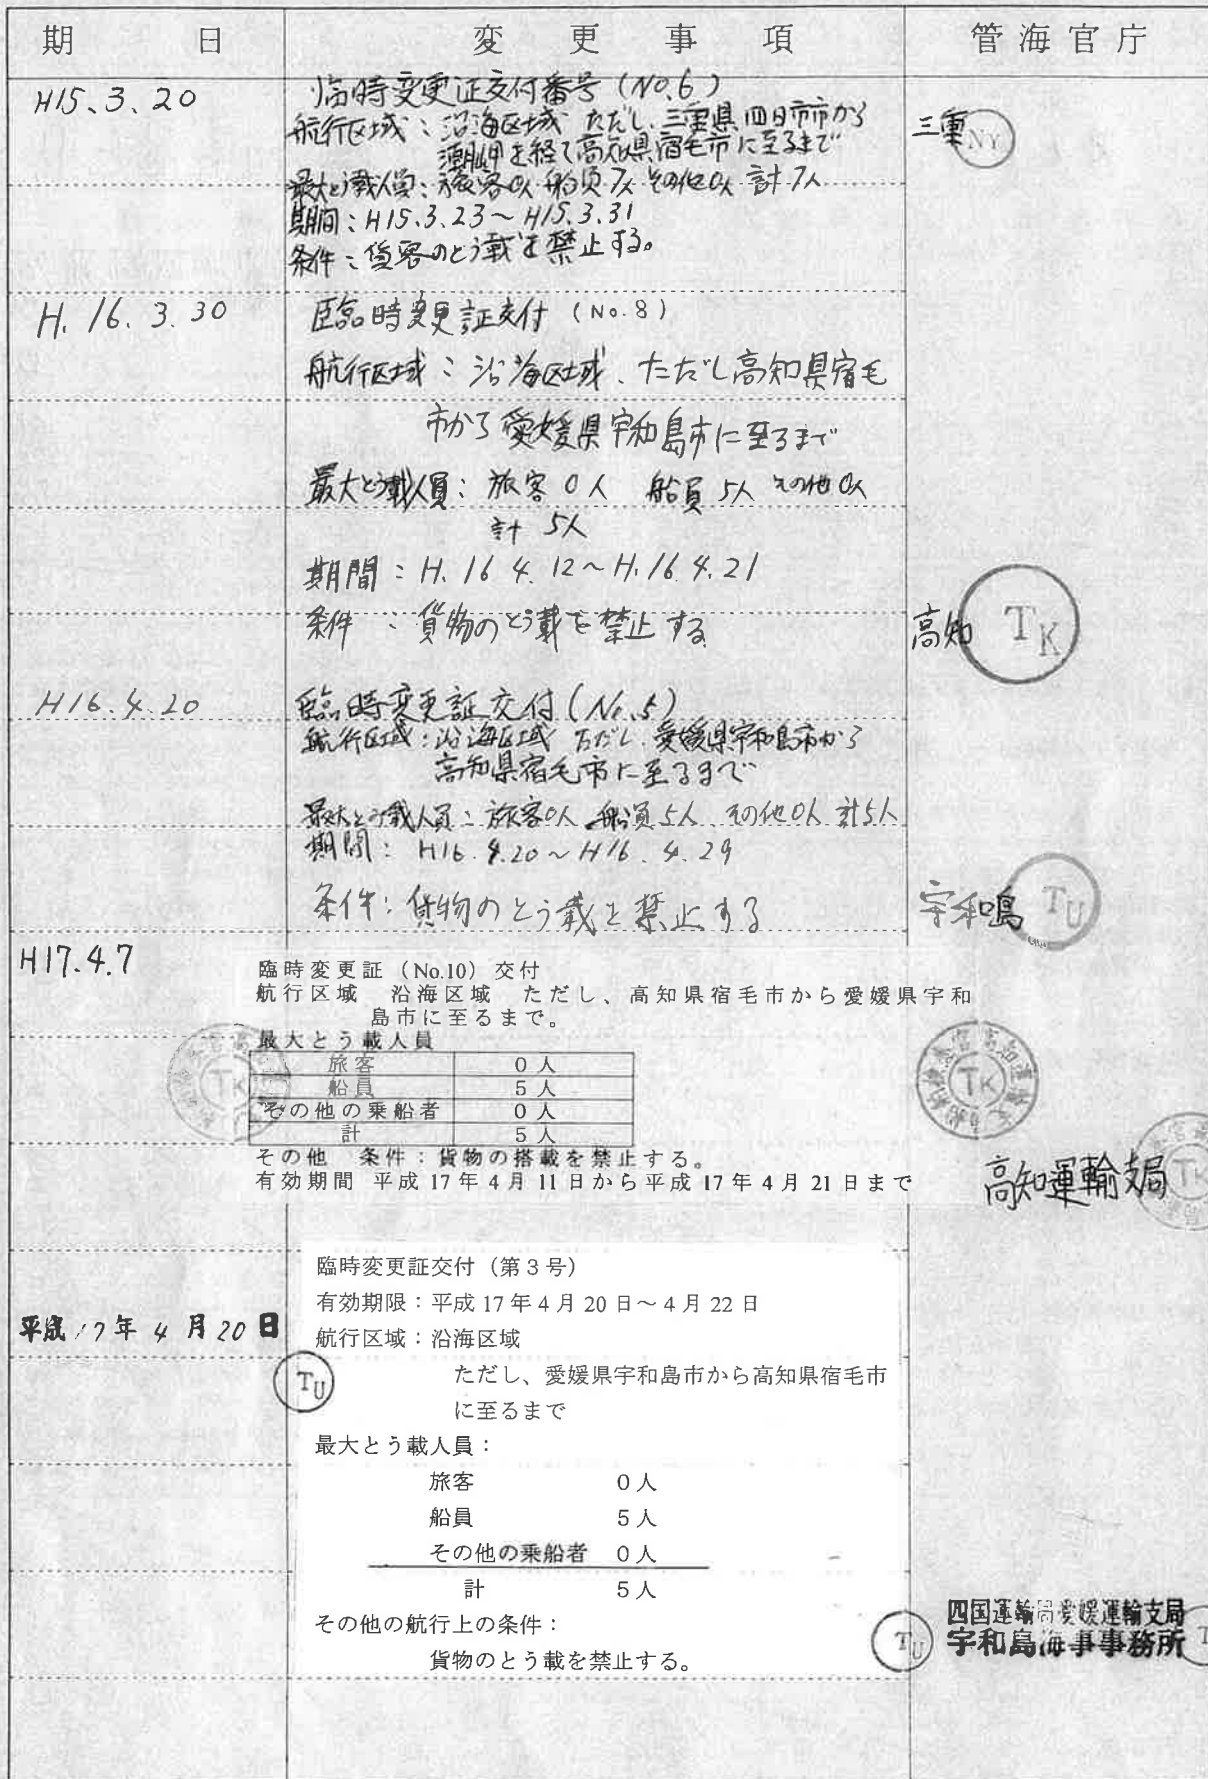 期日 変更事項 管海官庁
H15.3.20
臨時変更証交付番号(No.6)
航行区域:沿海区域 ただし、三重県四日市市から
潮岬を経て高知県宿毛市に至るまで
最大とう載人員:旅客0人 船員7人 その他0人 計7人
期間:H15.3.23~H15.3.31
条件:貨客のとう載を禁止する。
三重 NY
H.16.3.30
臨時変更証交付 (No.8)
航行区域:沿海区域、ただし高知県宿毛
市から愛媛県宇和島市に至るまで
最大とう載人員:旅客0人 船員5人 その他0人
計 5人
期間:H.16 4.12~H.16 4.21
条件:貨物のとう載を禁止する
高知 TK
H16.4.20
臨時変更証交付(No.5)
航行区域:沿海区域 ただし、愛媛県宇和島市から
高知県宿毛市に至るまで
最大とう載人員:旅客0人 船員5人、その他0人 計5人
期間:H16.4.20~H16.4.29
条件:貨物のとう載を禁止する
宇和嶋 TU
H17.4.7
臨時変更証(No.10)交付
航行区域 沿海区域 ただし、高知県宿毛市から愛媛県宇和
島市に至るまで。
最大とう載人員
旅客 0人
船員 5人
その他の乗船者 0人
計 5人
その他 条件:貨物の搭載を禁止する。
有効期間 平成17年4月11日から平成17年4月21日まで
TK
TK
高知運輸支局
TK
平成17年4月20日
TU
臨時変更証交付(第3号)
有効期限:平成17年4月20日~4月22日
航行区域:沿海区域
ただし、愛媛県宇和島市から高知県宿毛市
に至るまで
最大とう載人員:
旅客 0人
船員 5人
その他の乗船者 0人
計 5人
その他の航行上の条件:
貨物のとう載を禁止する。
四国運輸局愛媛運輸支局
TU 宇和島海事事務所